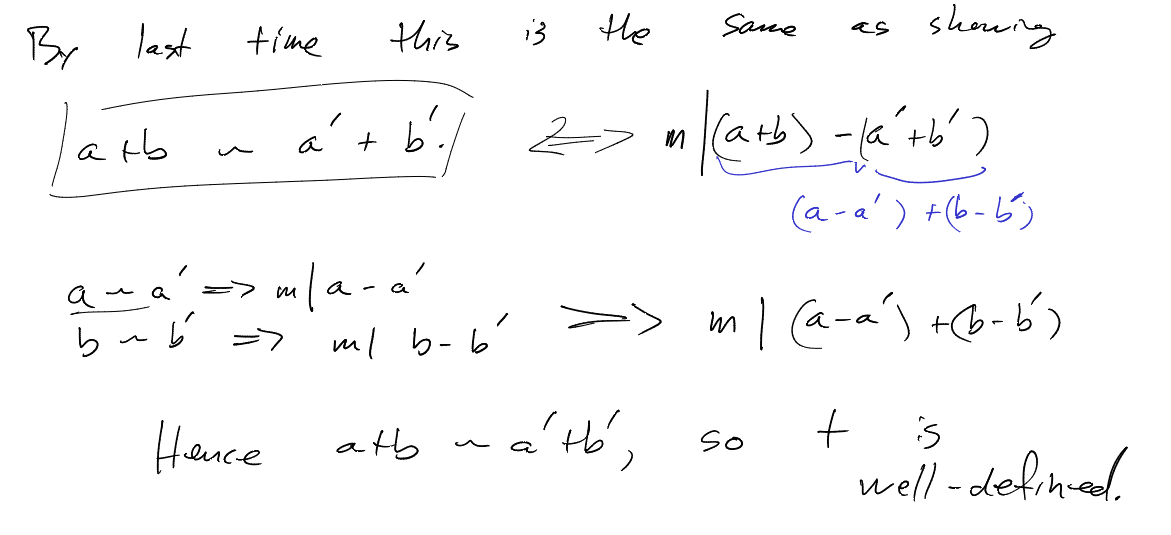 By last time this is the same as showing
a+b ~ a' + b'. <=> m | (a+b) - (a'+b')
(a-a') + (b-b')
a ~ a' => m | a - a'
b ~ b' => m | b - b' => m | (a-a') + (b-b')
Hence a+b ~ a'+b', so + is
well-defined.